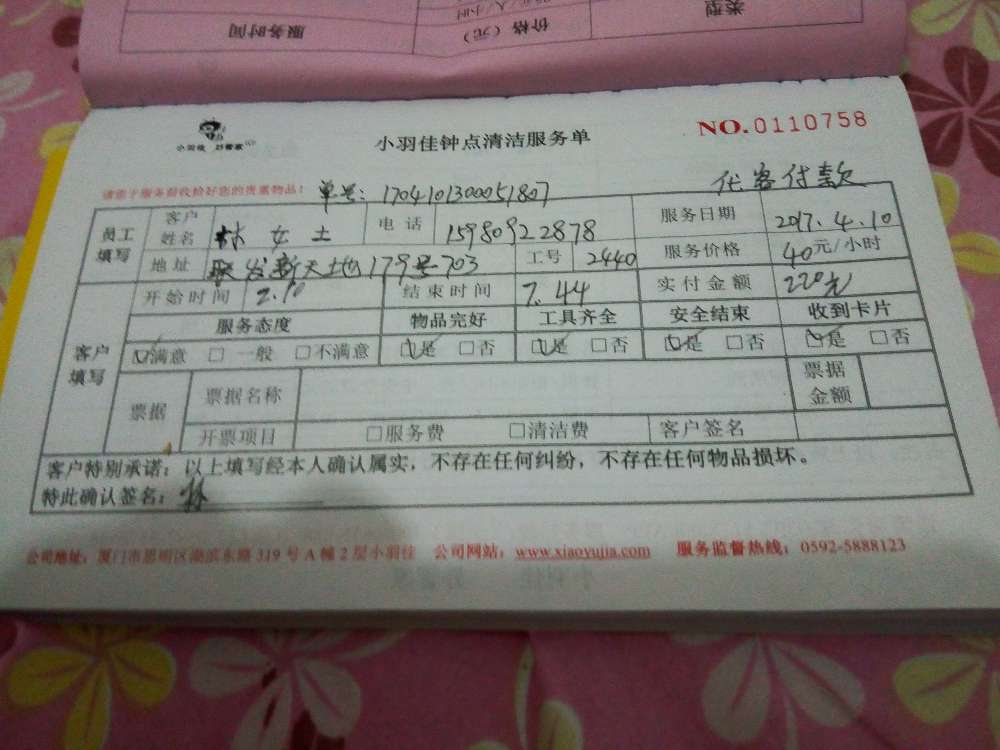 类型
价格(元)
服务时间
小羽佳 好管家
小羽佳钟点清洁服务单
NO.0110758
请您于服务前收拾好您的贵重物品!
单号:1704101300051807
代客付款
员工填写 客户姓名 林女士 电话 15980922878 服务日期 2017.4.10
地址 联发新天地179号703 工号 2440 服务价格 40元/小时
开始时间 2.10 结束时间 7.44 实付金额 220元
客户填写 服务态度 物品完好 工具齐全 安全结束 收到卡片
☑满意 □一般 □不满意 ☑是 □否 ☑是 □否 ☑是 □否 ☑是 □否
票据 票据名称 票据金额
开票项目 □服务费 □清洁费 客户签名
客户特别承诺:以上填写经本人确认属实,不存在任何纠纷,不存在任何物品损坏。
特此确认签名:林
公司地址:厦门市思明区湖滨东路319号A幢2层小羽佳 公司网站:www.xiaoyujia.com 服务监督热线:0592-5888123